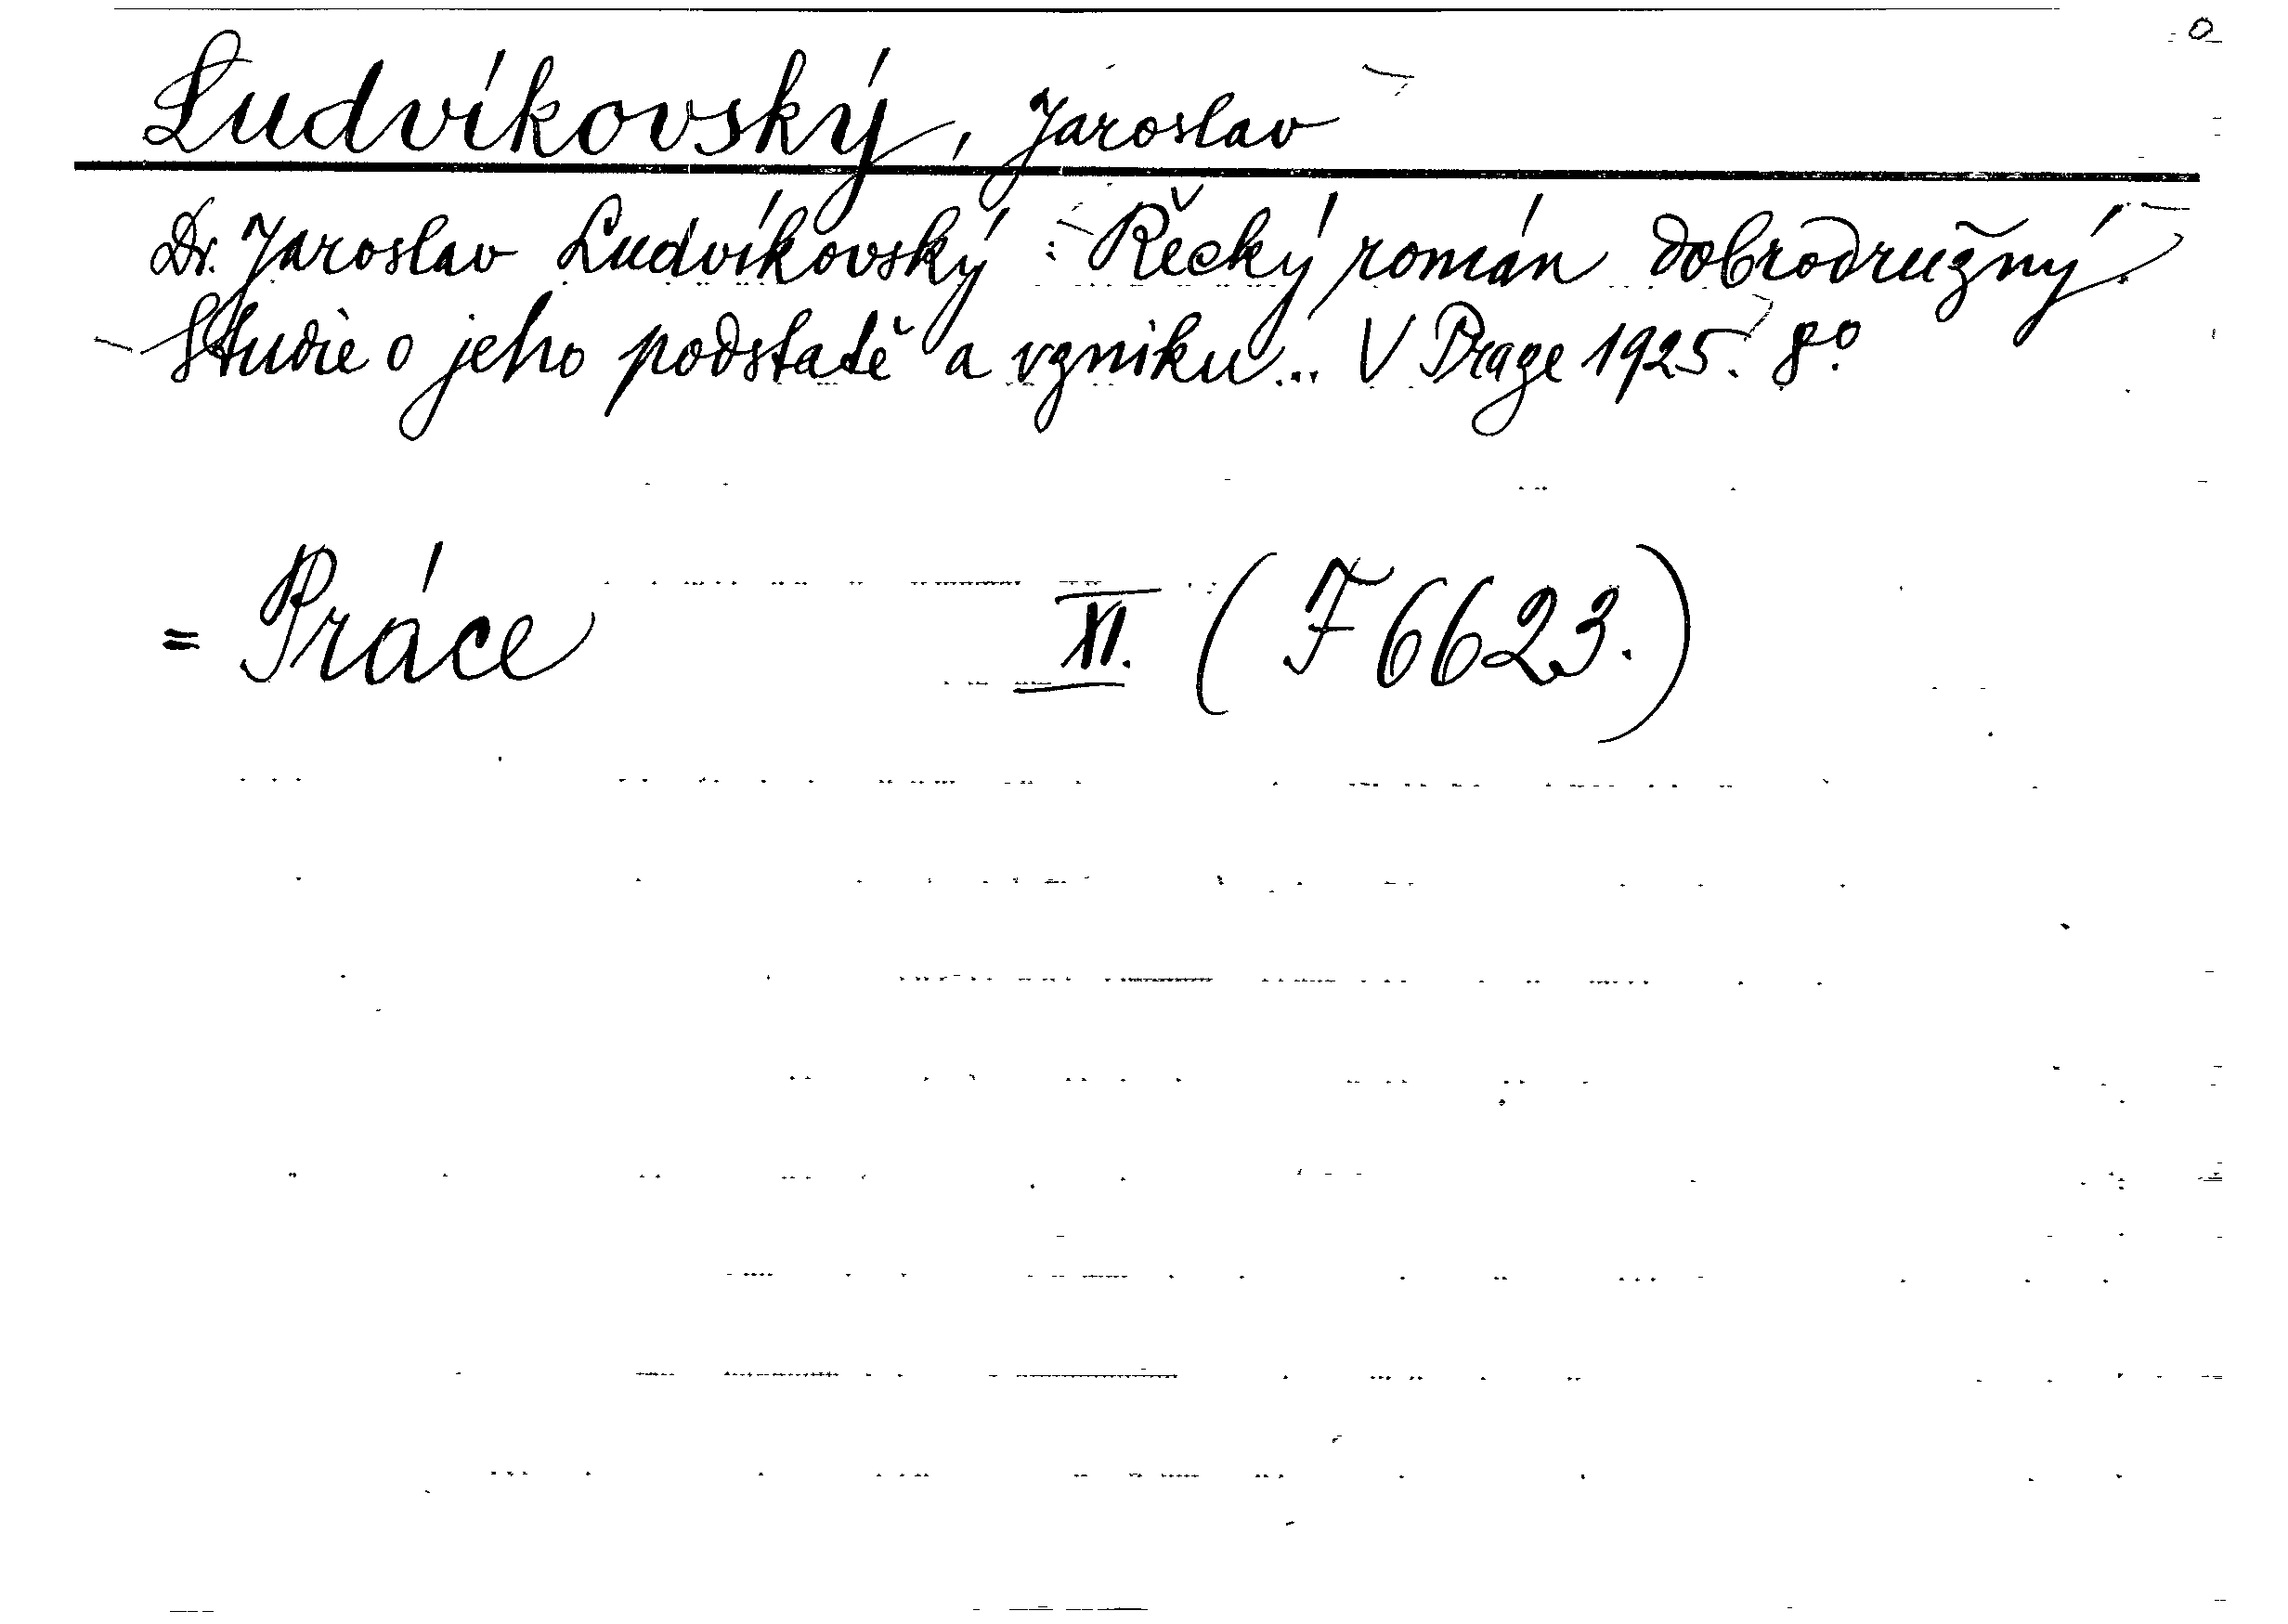 Ludvíkovský, Jaroslav
Dr. Jaroslav Ludvíkovský: Řecký román dobrodružný.
Studie o jeho podstatě a vzniku... V Praze 1925. 8º.
= Práce XI. (F 6623.)